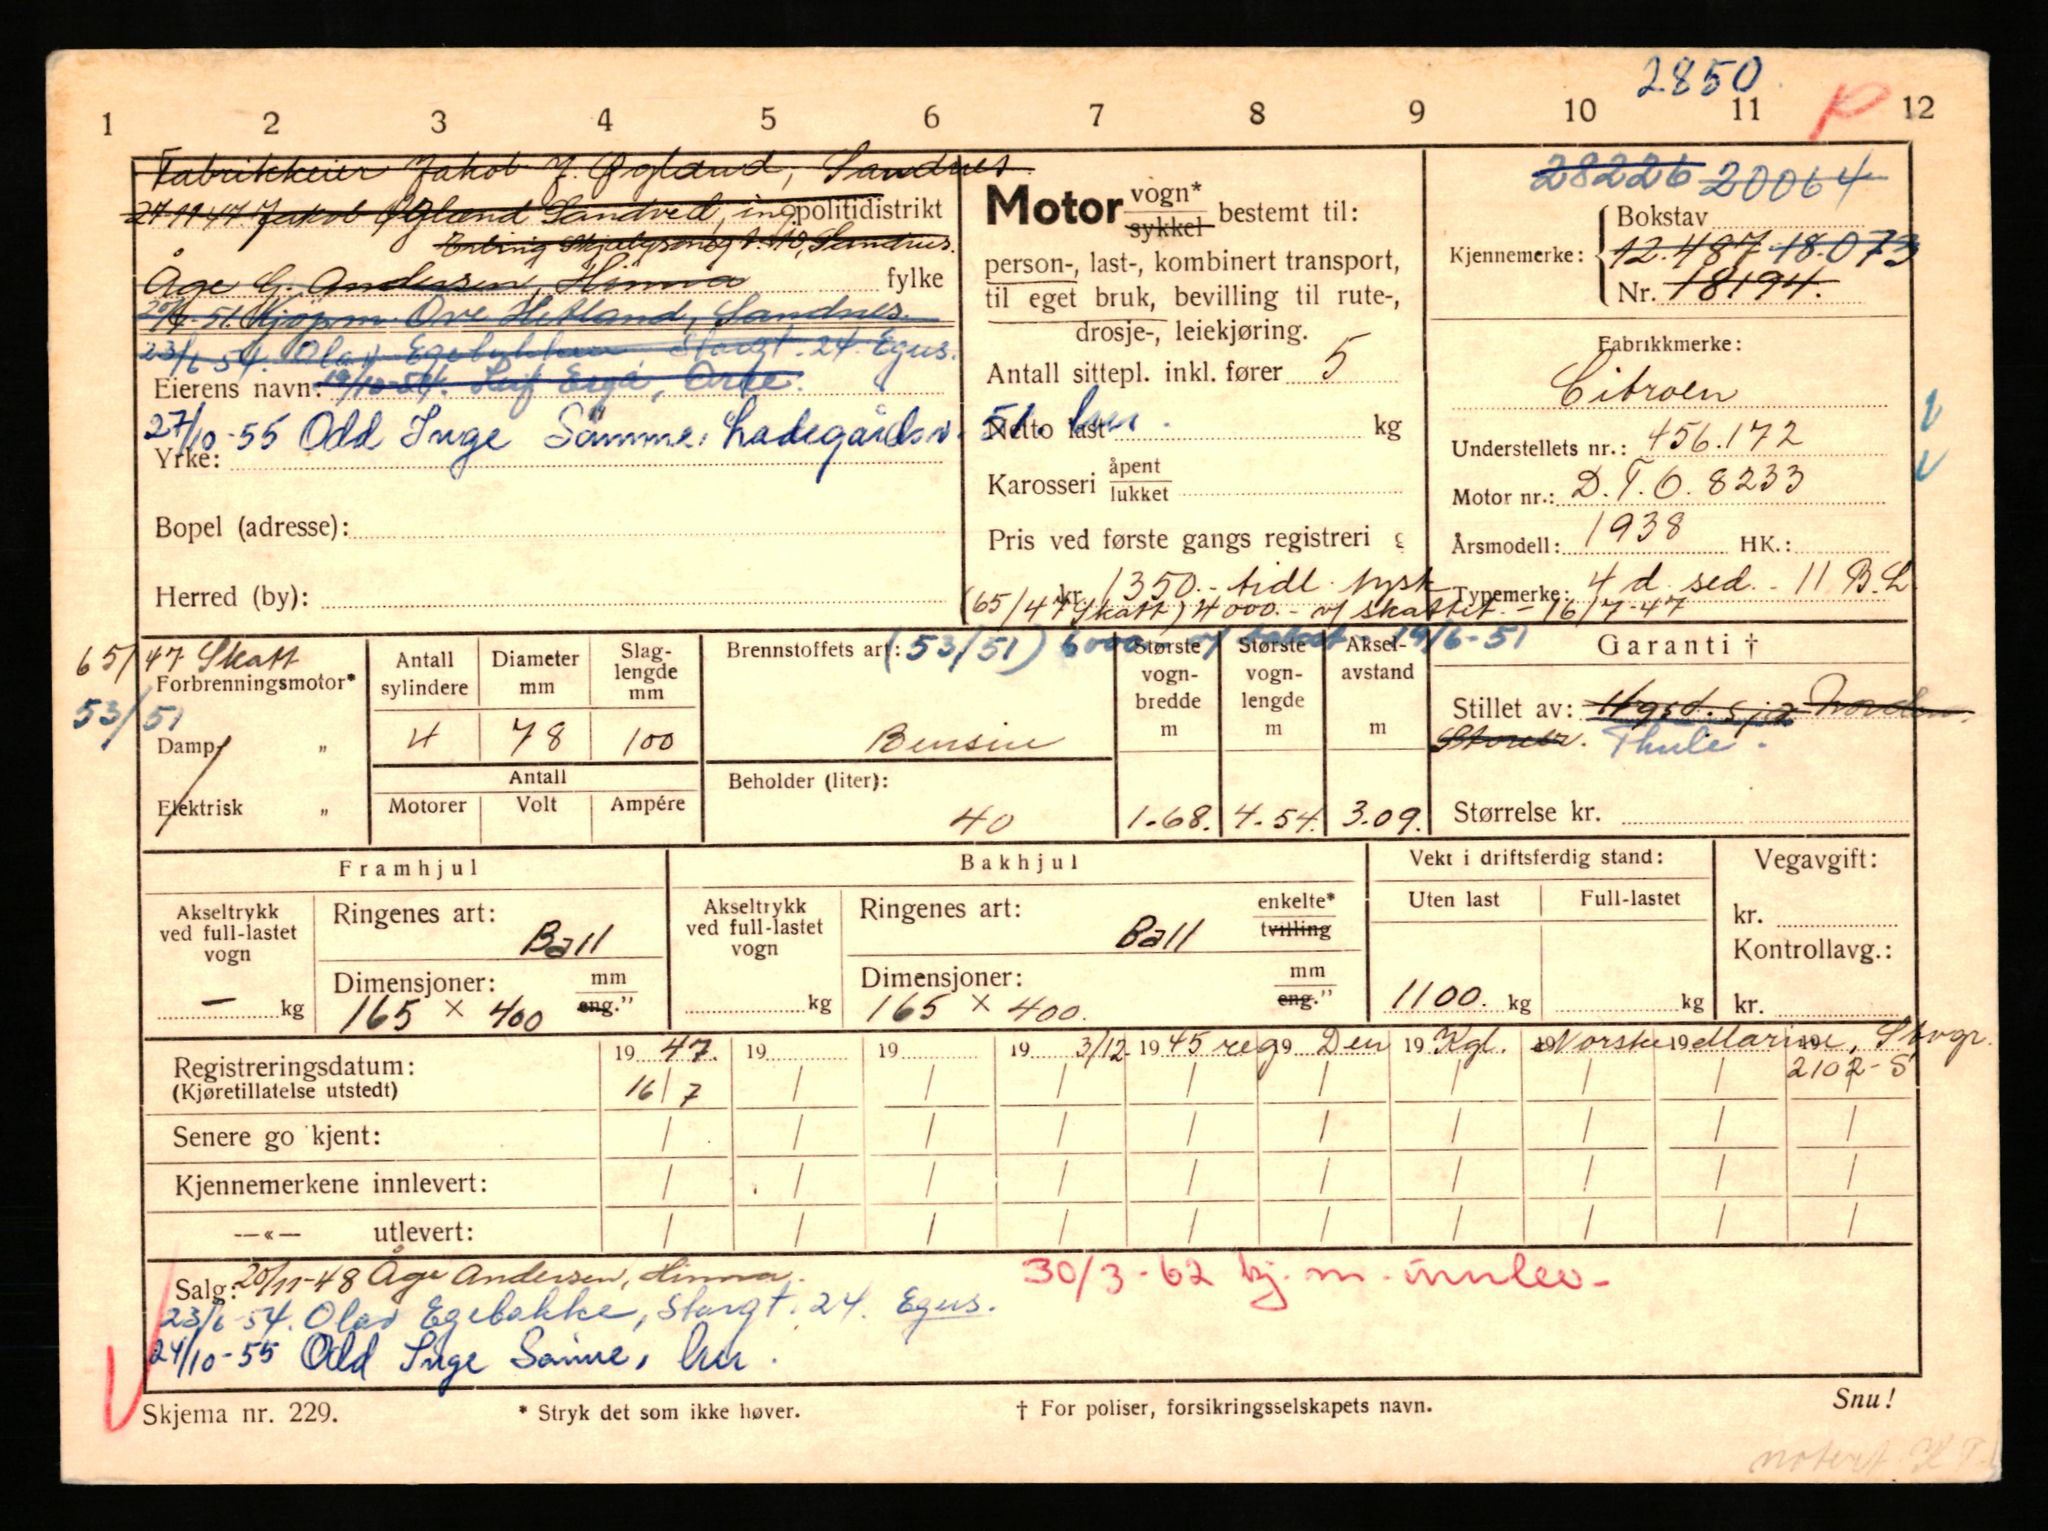 2850
P
1 2 3 4 5 6 7 8 9 10 11 12
Fabrikkeier Jakob J. Øglænd, Sandnes
27/11 47. Jakob Øglænd Sandved, ing. politidistrikt
Erling Skjalgsonsgt. 10, Sandnes.
Åge G. Andersen, Hinna fylke
20/6-51. Kjøpm. Ove Hetland, Sandnes.
23/6-54. Olav Egebakken Storgt. 24. Egers.
Eierens navn: 19/10-54. Leif Erga, Orre.
27/10-55 Odd Inge Sömme, Ladegårdsv. 51. her.
Yrke:
Bopel (adresse):
Herred (by):
Motor vogn* sykkel bestemt til:
person-, last-, kombinert transport,
til eget bruk, bevilling til rute-,
drosje-, leiekjøring.
Antall sittepl. inkl. fører 5
Netto last kg
Karosseri åpent lukket
Pris ved første gangs registreri g
kr. 1350.- tidl. tysk
(65/47 Skatt) 4000.- v/ skattet - 16/7-47
28226 20064
Bokstav
Kjennemerke: 12.487 18.073
Nr. 18194.
Fabrikkmerke:
Citroen
Understellets nr.: 456.172
Motor nr.: D.T.O. 8233
Årsmodell: 1938 HK.:
Typemerke: 4 d. sed. - 11 B.L
65/47 Skatt
Forbrenningsmotor*
53/51
Damp „
Elektrisk „
Antall sylindere
4
Diameter mm
78
Slag- lengde mm
100
Antall
Motorer Volt Ampére
Brennstoffets art: (53/51) 6000.- v/ takst 19/6-51
Bensin
Beholder (liter):
40
Største vogn- bredde m
1.68.
Største vogn- lengde m
4.54.
Aksel- avstand m
3.09.
Garanti †
Stillet av: Norden
Storebr. Thule.
Størrelse kr.
Framhjul
Akseltrykk ved full-lastet vogn
— kg
Ringenes art:
Ball
Dimensjoner: mm eng.”
165 × 400
Bakhjul
Akseltrykk ved full-lastet vogn
kg
Ringenes art: enkelte* tvilling
Ball
Dimensjoner: mm eng.”
165 × 400.
Vekt i driftsferdig stand:
Uten last Full-lastet
1100. kg kg
Vegavgift:
kr.
Kontrollavg.:
kr.
Registreringsdatum: 19 47. 19 19 19 3/12. 19 45 reg 19 Den 19 Kgl. 19 Norske 19 Marine, Stvgr.
(Kjøretillatelse utstedt) 16/7 2102-S
Senere go kjent:
Kjennemerkene innlevert:
—«— utlevert:
Salg: 20/11-48 Åge Andersen, Hinna.
30/3-62 kj.m. innlev-
23/6-54. Olav Egebakke, Storgt. 24. Egers.
24/10-55 Odd Inge Sömme, her.
Skjema nr. 229. * Stryk det som ikke høver. † For poliser, forsikringsselskapets navn. Snu!
notert